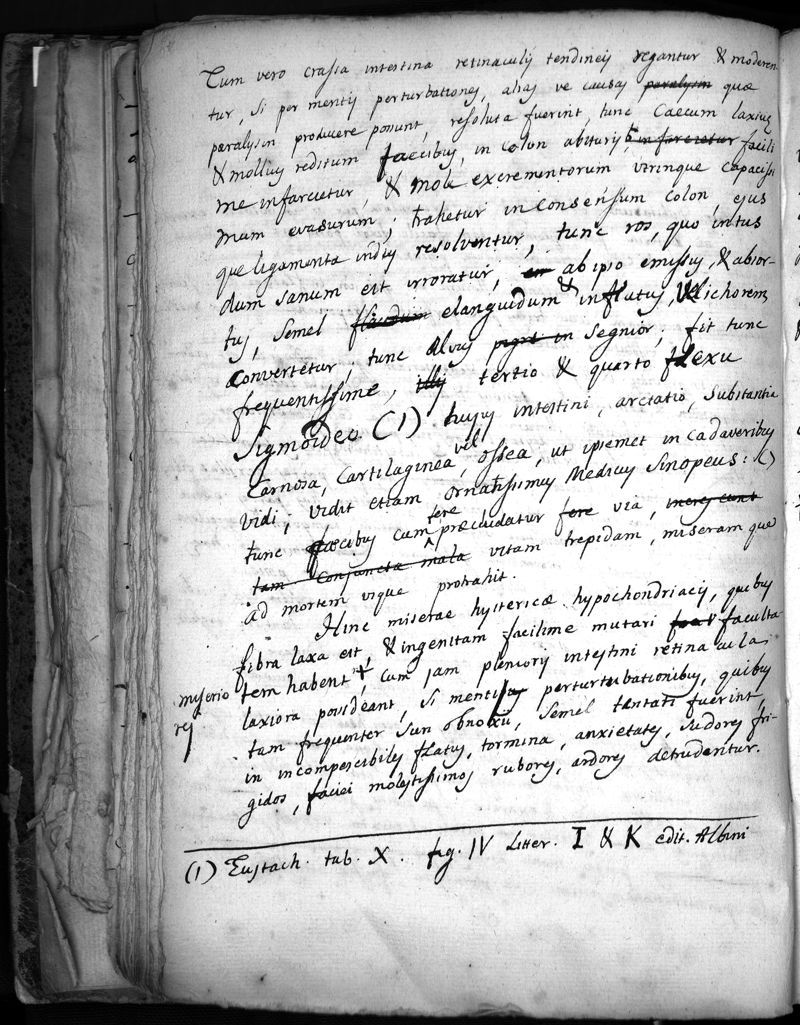 Cum vero crassa intestina retinaculis tendineis regantur & moderen
tur, si per mentis perturbationes, alias ve causas paralysin quæ
paralysin producere possunt, resoluta fuerint, tunc Caecum laxius
& mollius reditum faecibus, in Colon abituris infarcietur facili
me infarcietur, & mole excrementorum utrinque capacissi
mum evasurum; trahetur in consensum Colon, ejus
que ligamenta indies resolventur, tunc ros, quo intus
dum sanum est irroratur, ab ipso emissus, & absor-
tus, semel flaccidum elanguidum & inflatus, ichorem
convertetur, tunc alvus pigri in segnior; fit tunc
frequentissime, illis tertio & quarto flexu
Sigmoideo (1) hujus intestini, arctatio, substantia
Carnosa, Cartilaginea vel ossea, ut ipsemet in cadaveribus
vidi; vidit etiam ornatissimus Medicus Sinopeus: ()
tunc faecibus cum fere præcludatur fere via,
tam conjuncta mala vitam trepidam, miseram quæ
ad mortem usque protrahit.
Hinc miserae hystericæ hypochondriacis, quibus
fibra laxa est, & ingenitam facilime mutari faculta
miserio tem habent +, cum jam plenioris intestini retinacula
res laxiora possideant, si mentis perturbationibus, quibus
tam frequenter sun obnoxii, semel tentati fuerint,
in incompescibiles flatus, tormina, anxietates, sudores fri-
gidos, faciei molestissimos rubores, ardores detrudentur.
(1) Eustach. tab. X. fig. IV Litter. I & K edit. Albini